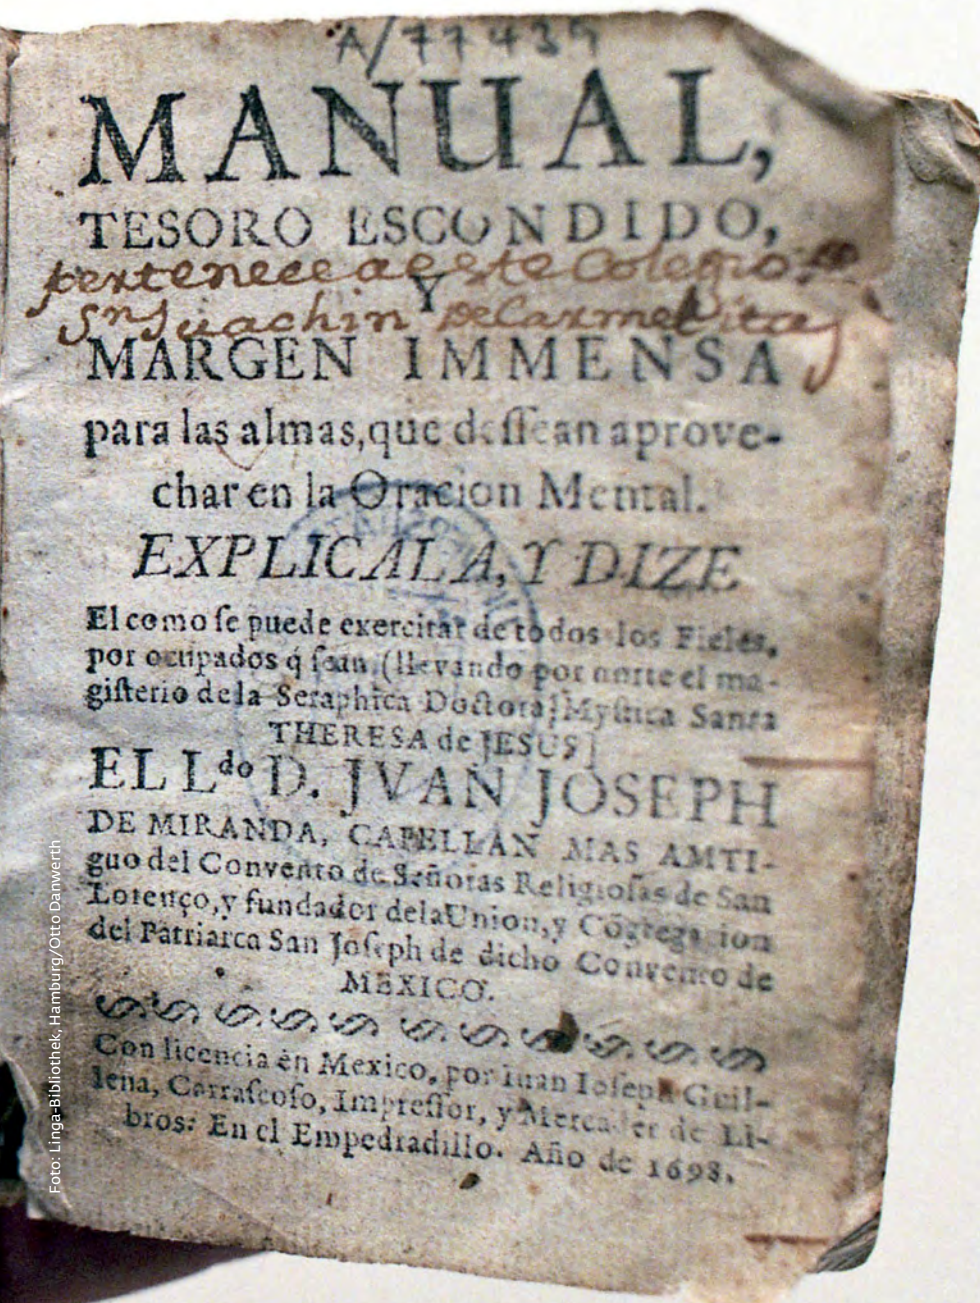 A/77439
MANUAL,
TESORO ESCONDIDO,
pertenece a este Colegio
Y
Sn Juachin De Carmelitas
MARGEN IMMENSA
para las almas, que dessean aprove-
char en la Oracion Mental.
EXPLICALA, Y DIZE
El como se puede exercitar de todos los Fieles,
por ocupados q̃ sean, (llevando por norte el ma-
gisterio de la Seraphica Doctora, Mystica Santa
THERESA de JESUS)
EL Ldo D. JVAN JOSEPH
DE MIRANDA, CAPELLAN MAS AMTI-
guo del Convento de Señoras Religiosas de San
Lorenço, y fundador de la Union, y Cõgregacion
del Patriarca San Joseph de dicho Convento de
MEXICO.
Con licencia en Mexico, por Iuan Ioseph Guil-
lena, Carrascoso, Impressor, y Mercader de Li-
bros: En el Empedradillo. Año de 1698.
Foto: Linga-Bibliothek, Hamburg/Otto Danwerth